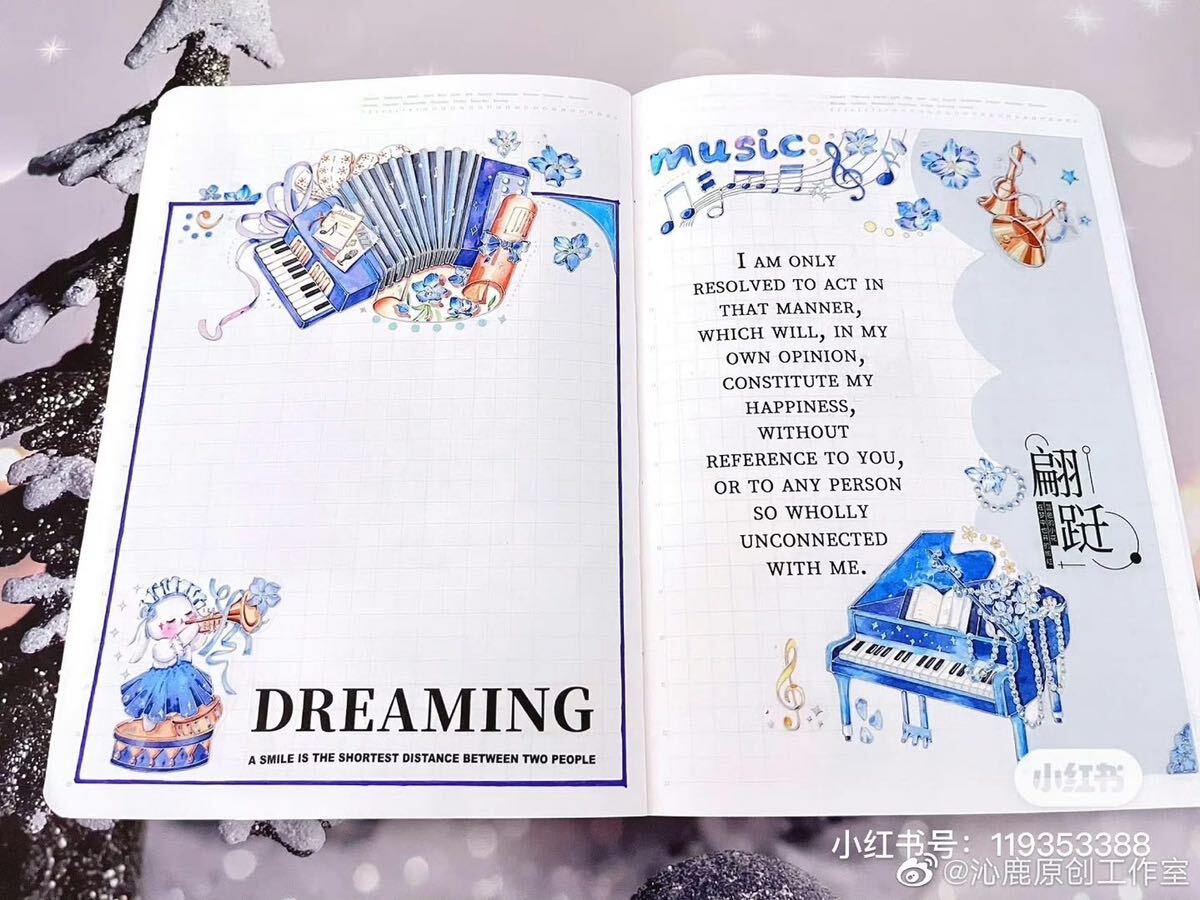 DREAMING
A SMILE IS THE SHORTEST DISTANCE BETWEEN TWO PEOPLE
music
I AM ONLY
RESOLVED TO ACT IN
THAT MANNER,
WHICH WILL, IN MY
OWN OPINION,
CONSTITUTE MY
HAPPINESS,
WITHOUT
REFERENCE TO YOU,
OR TO ANY PERSON
SO WHOLLY
UNCONNECTED
WITH ME.
翩
跹
小红书
小红书号：119353388
@沁鹿原创工作室